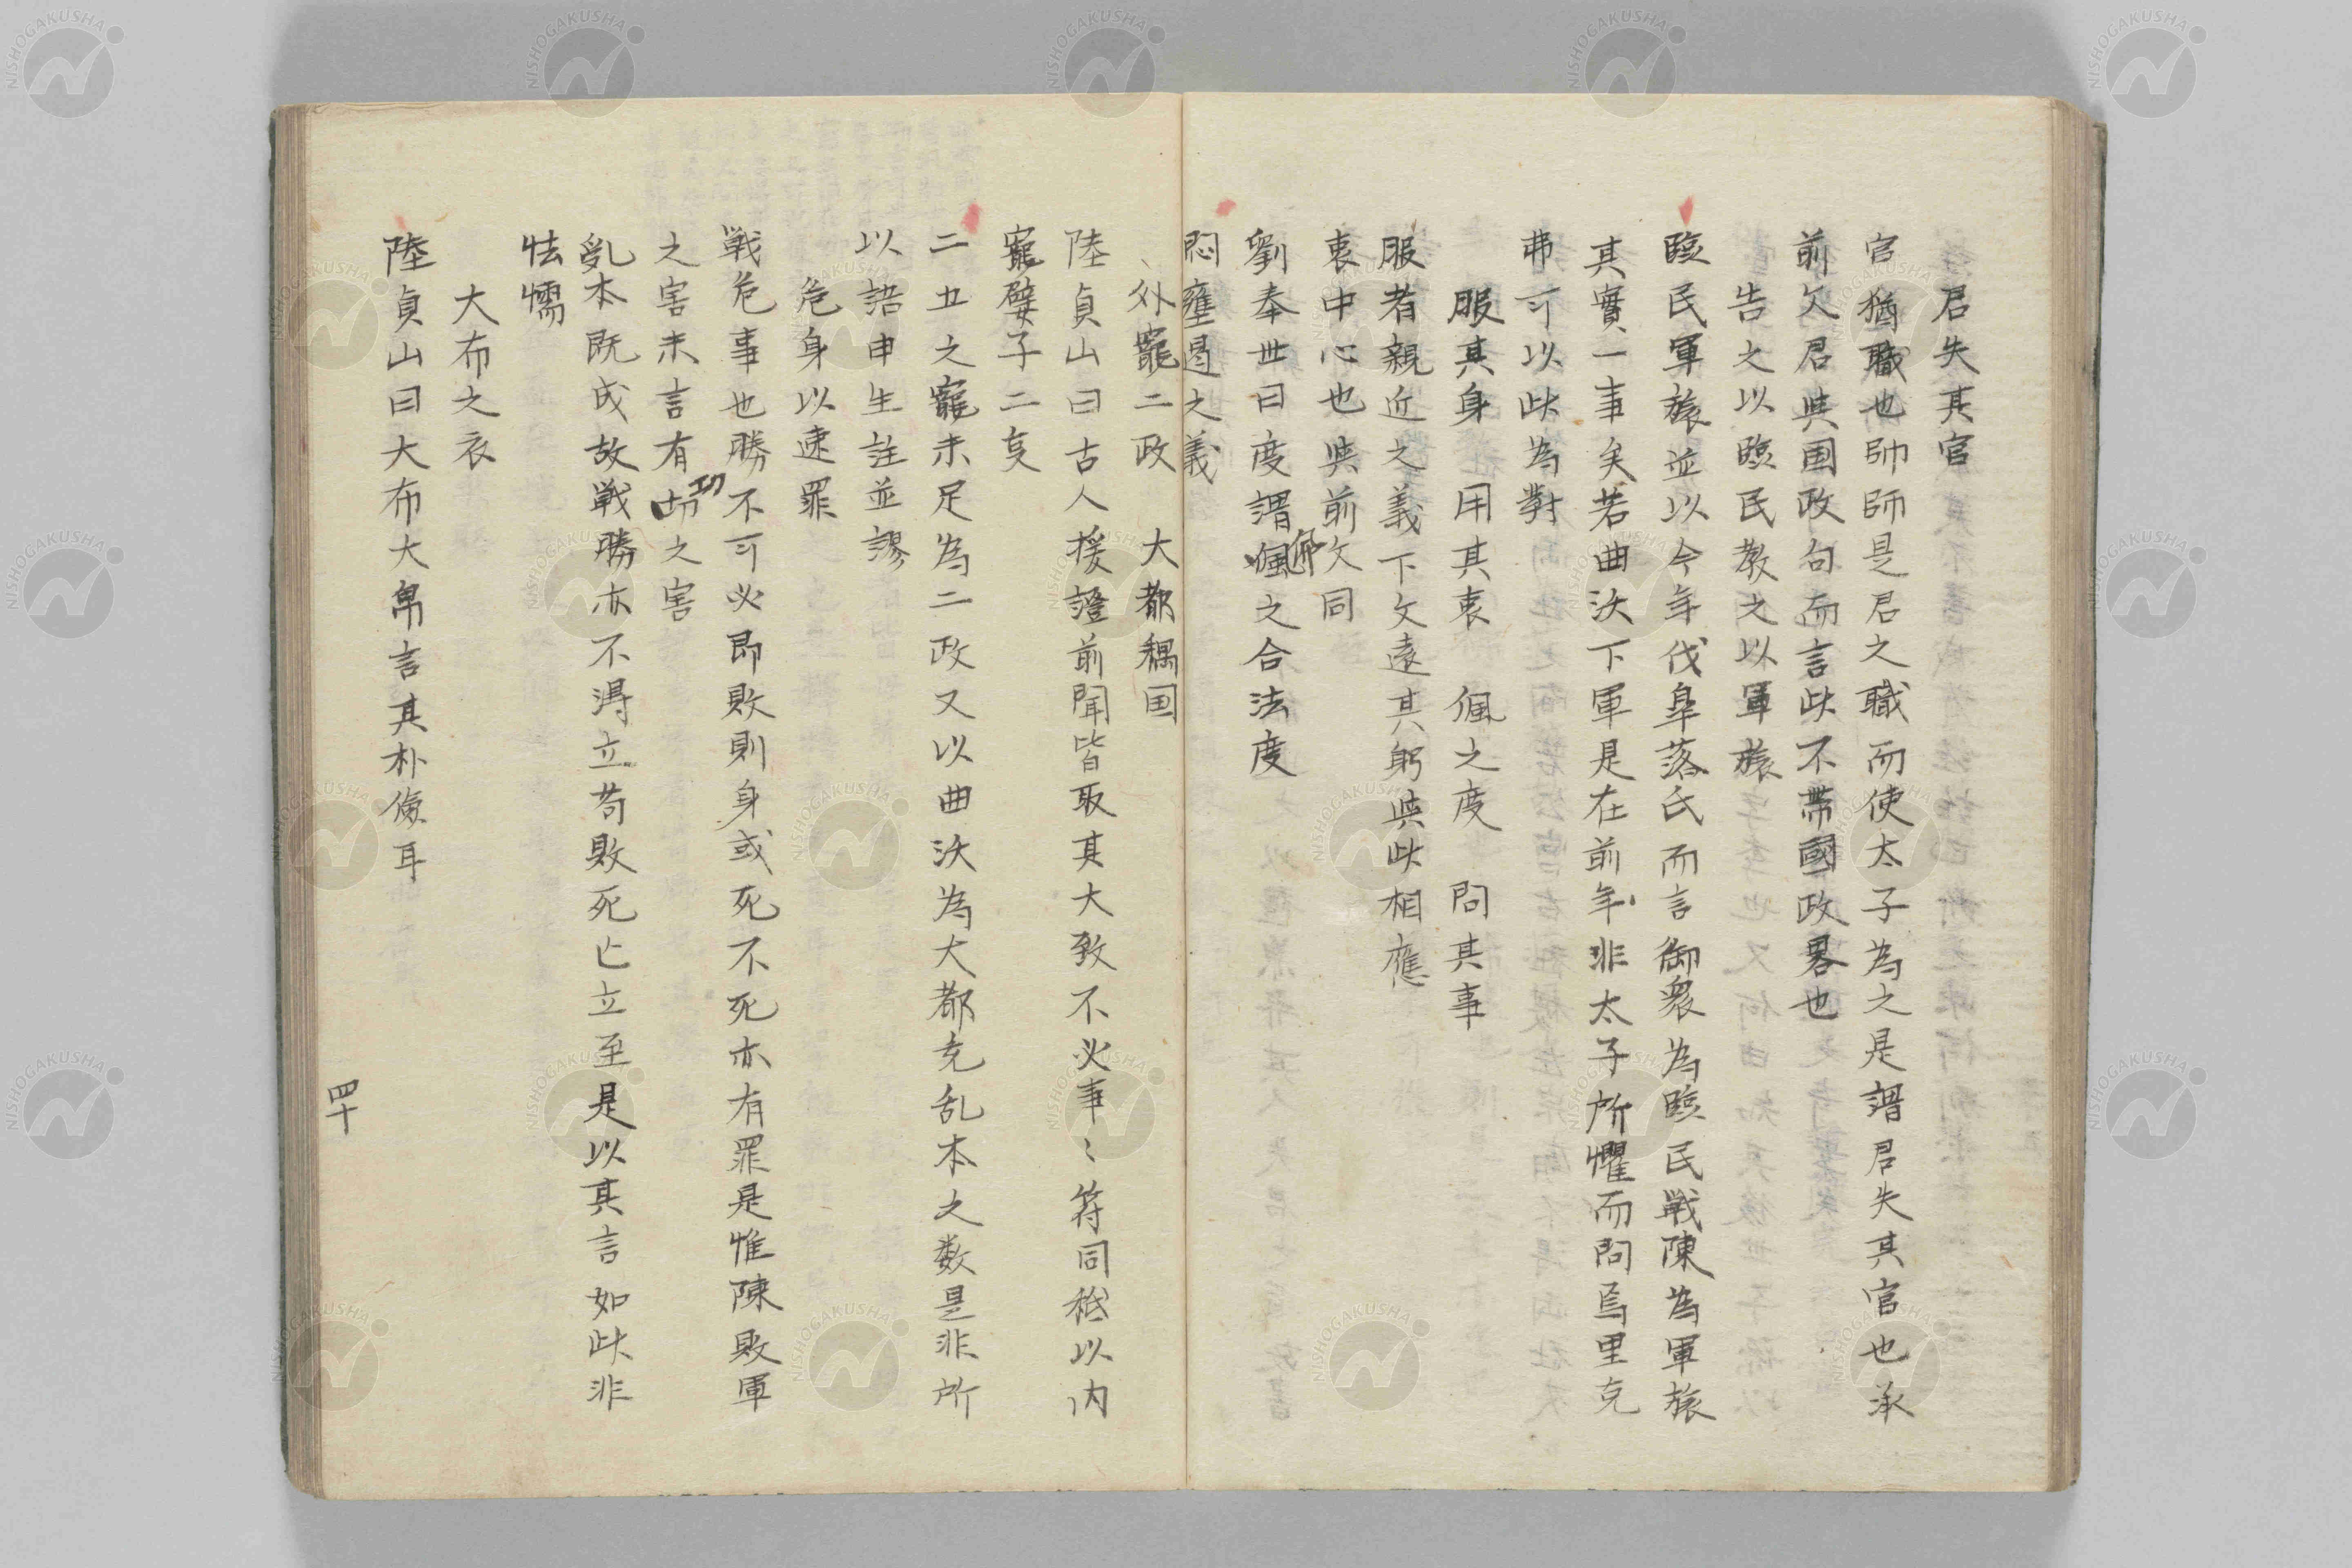 君失其官
官猶職也帥師是君之職而使太子為之是謂君失其官也承
前文君與国政句而言此不帶國政畧也
告之以臨民教之以軍旅
臨民軍旅並以今年伐皐落氏而言御衆為臨民戦陳為軍旅
其實一事矣若曲沃下軍是在前年非太子所懼而問焉里克
弗可以此為對
服其身 用其衷 佩之度 問其事
服者親近之義下文遠其躬與此相應
衷中心也與前文同
劉奉世曰度謂佩之合法度
悶壅遏之義
外寵二政 大都耦国
陸貞山曰古人援證前聞皆取其大致不必事〻符同秪以内
寵嬖子二支
二五之寵未足為二政又以曲沃為大都充乱本之数是非所
以語申生註並謬
危身以速罪
戦危事也勝不可必即敗則身或死不死亦有罪是惟陳敗軍
之害未言有功之害
亂本既成故戦勝亦不得立苟敗死亡立至是以其言如此非
怯懦
大布之衣
陸貞山曰大布大帛言其朴儉耳
四十